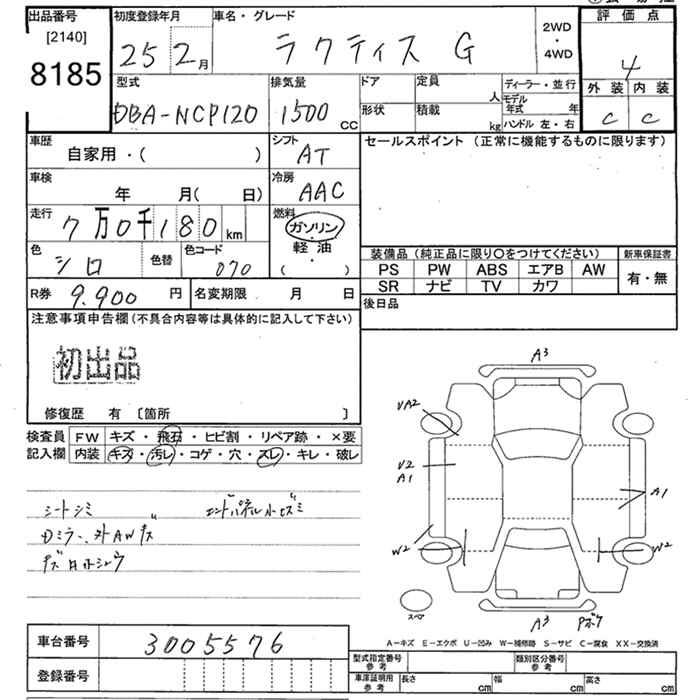 出品番号
[2140]
8185
初度登録年月
25 2月
車名・グレード
ラクティス G
2WD
・
4WD
評価点
4
外装 内装
C C
型式
DBA-NCP120
排気量
1500 CC
ドア
形状
定員
人
積載
kg
ディーラー・並行
モデル年式 年
ハンドル 左・右
車歴
自家用・( )
シフト
AT
セールスポイント (正常に機能するものに限ります)
車検
年 月( 日)
冷房
AAC
走行
7万0千180km
燃料
ガソリン・
軽油・
( )
色
シロ
色替
色コード
070
装備品 (純正品に限り○をつけてください)
新車保証書
PS PW ABS エアB AW
SR ナビ TV カワ
有・無
R券 9.900 円
名変期限 月 日
後日品
注意事項申告欄 (不具合内容等は具体的に記入して下さい)
初出品
修復歴 有 〔箇所 〕
検査員記入欄
FW キズ・飛石・ヒビ割・リペア跡・×要
内装 キズ・汚レ・コゲ・穴・スレ・キレ・破レ
シートシミ
エンドパネル小ヒズミ
Dミラー、外AWキズ
A3
UA2
U2
A1
A1
W2
W2
スペア
A3
Pボケ
A-キズ E-エクボ U-凹み W-補修跡 S-サビ C-腐食 XX-交換済
車台番号 3005576
登録番号
型式指定番号 参考
類別区分番号 参考
車庫証明用 参考
長さ cm
幅 cm
高さ cm